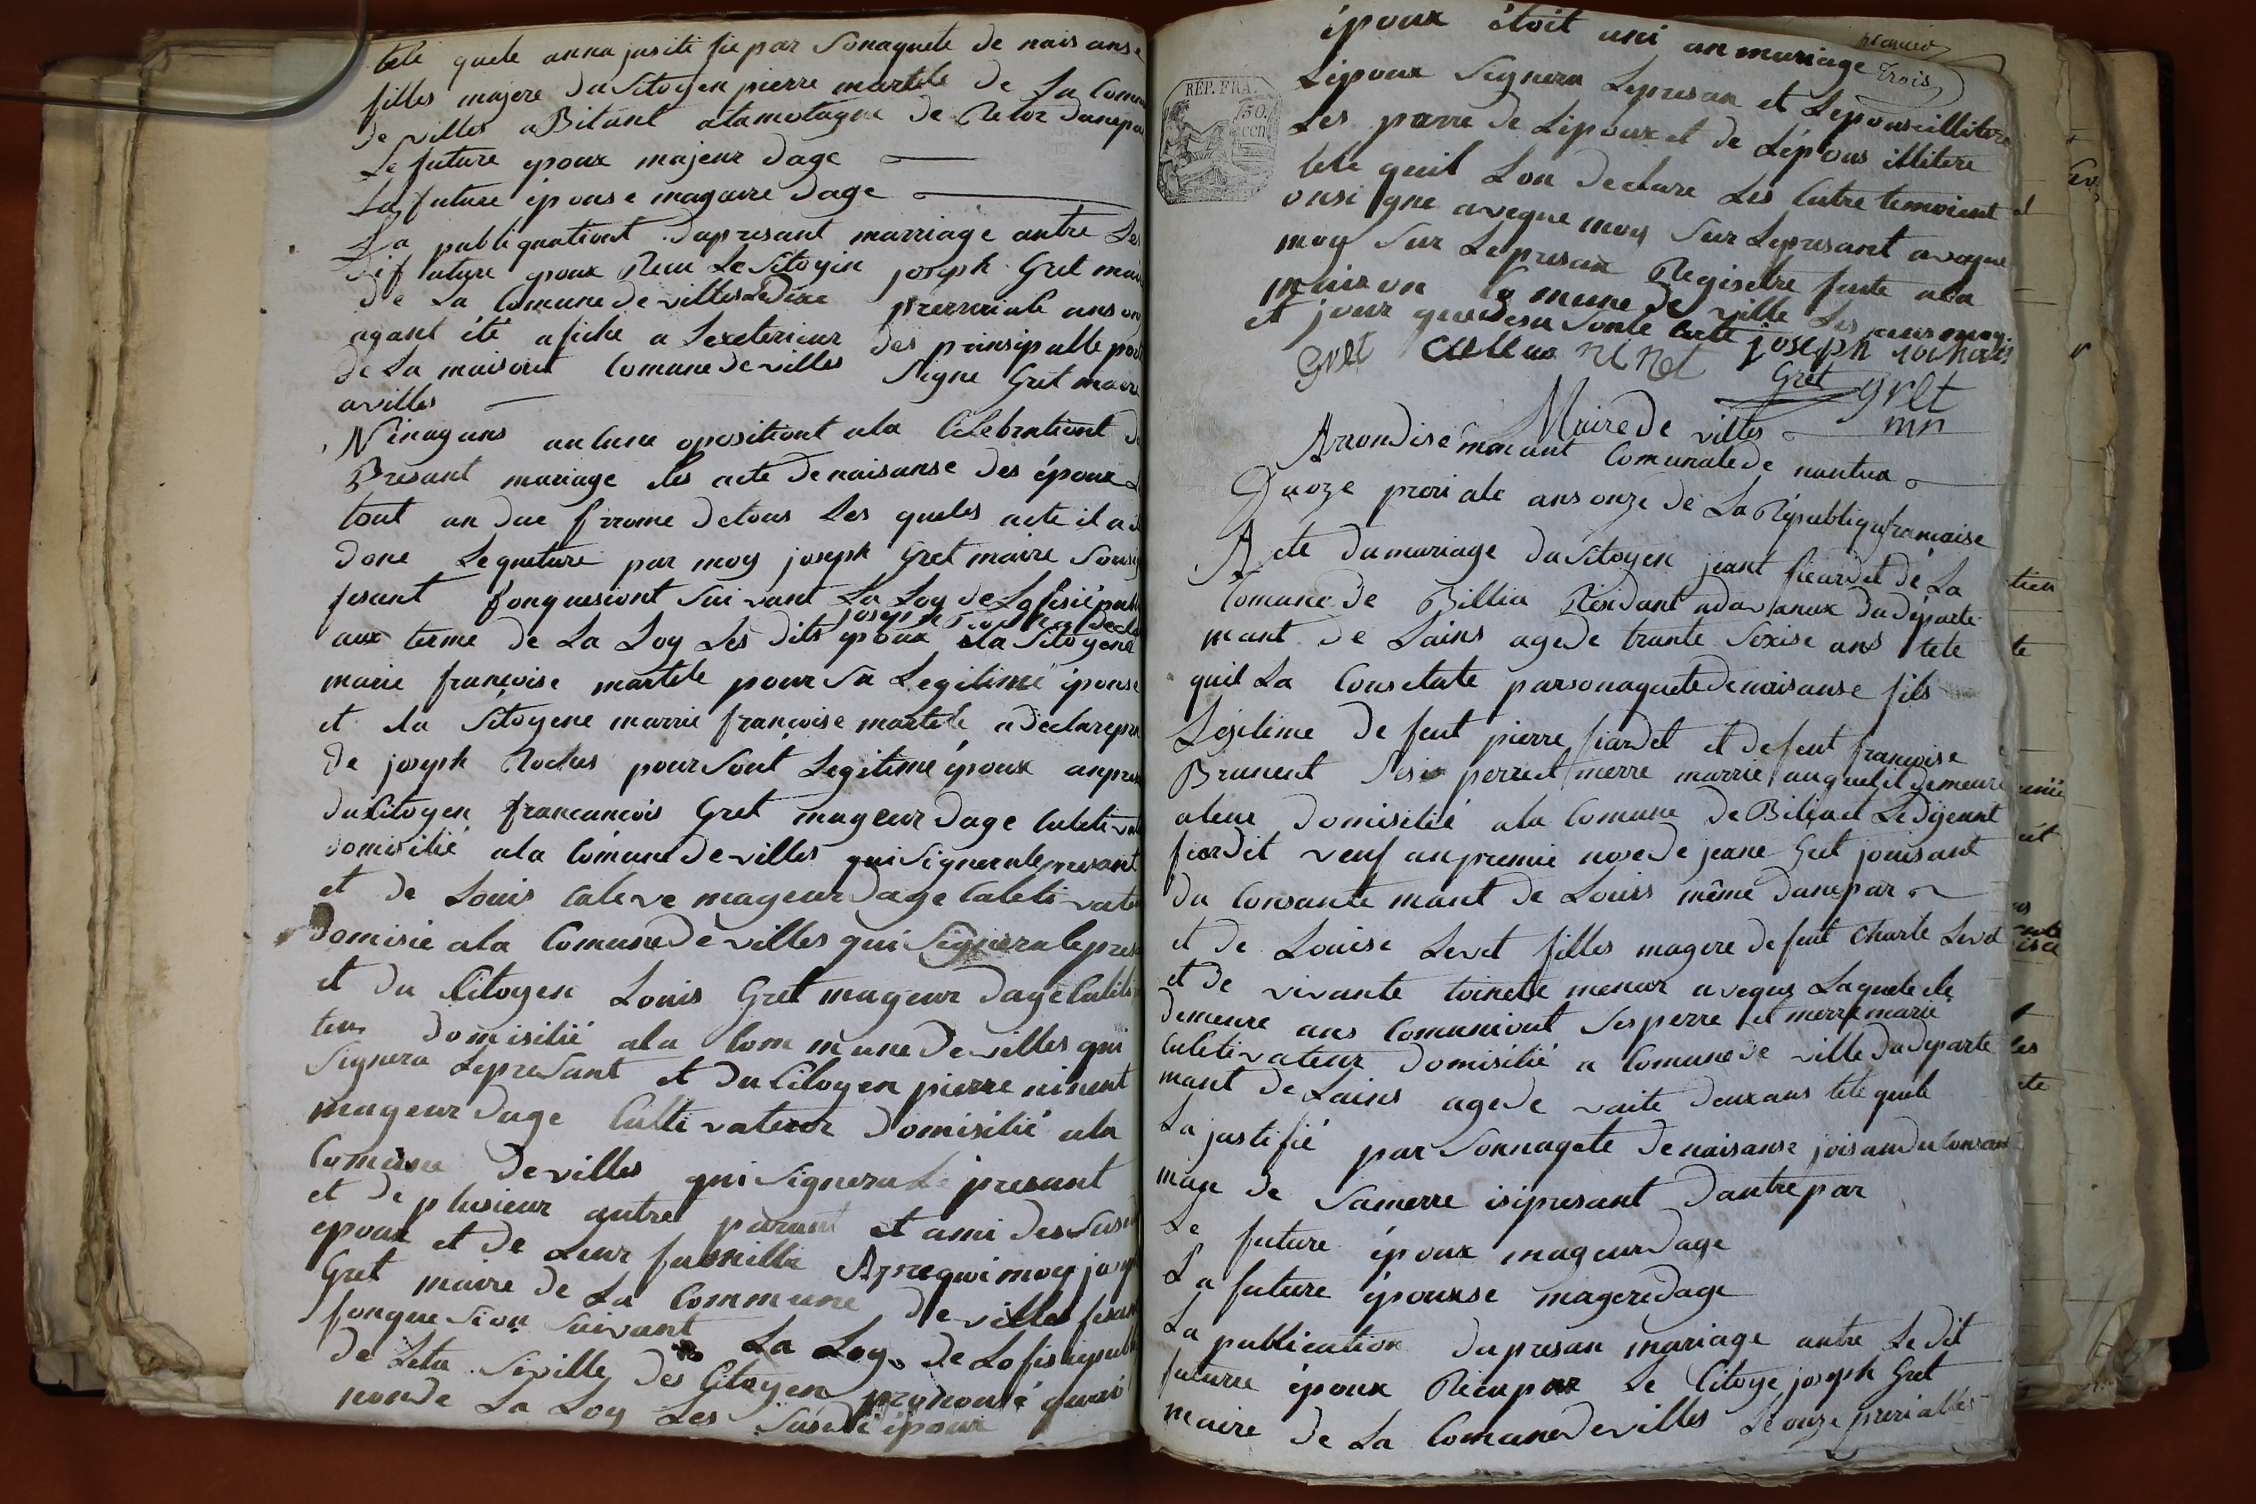 tele quele anna jusiti fie par Sonaquete de naisanse
filles majere du Sitoyen pierre martele de La Comu
de villes aBitant alamotagne de Retor danepar
Le future epoux majeur dage
La future épouse magaure dage
La publiquationt dapresant marriage antre Les
dif uture epoux Recu Le Sitoyin joseph Gret mair
de La Comune de villes Ledixe prerriale ans on
ayant été afiche a Lexeterieur des prinsipalle port
de La maisont Comune de villes Signe Gret maire
avilles
Ninayans aucune opositiont ala Célébrationt du
Presant mariage les acte de naisanse des époux
tout an due frrome detous Les queles acte il a é
done Lequeture par moy joseph Gret maire Sousig
fesant fonquesiont Suivant La Loy de Lofisié publ
joseph
aux terme de La Loy Les dits époux la Sitoyene
marie francoise martele pour Sa Legitime épouse
et la Sitoyene marrie francoise martele a declarepra
de joseph Rochas pour Sont Legitime époux anpres
du Citoyen francancois Gret mageur dage Culetivat
domisilié ala Comune de villes qui Signerale presant
et de Louis Caleve mageur dage Culetivate
Domisie ala Comune de villes qui Signerale pres
et du Citoyen Louis Gret mageur dage Culetiva
teur domisilié ala Com mune de villes qui
Signera Le preSant et du Citoyen pierre ninent
mageur dage Culti vateur domisilié ala
Comune de villes qui Signera Le presant
et de plusieur autre parant et ami des Susd
epoux et de Leur famille Apre qui moy josep
Gret maire de La Commune de villes fesan
fonque Sion Suivant La Loy de Lofisié publi
de Leta Siville des Citoyen prononcé quau
nonde La Loy Les Susdit époux
époux étoit uni an mariage
Trois
REP. FRA.
50.
cen
Lépoux Signera Lepresan et Lepouse illitere
Les parre de Lépoux et de Lépous illitere
tele quil Lon declare Les Cutre temoient
onsi gne aveque moy Sur Lepresant aveque
moy Sur Lepresan Regisetre faite ala
maison Comune de ville Les ans moy
et jour quedesu Sonte Cute joseph rochas
Gret Culleve ninet Gret gret
Maire de villes mn
Arrondise mant Comunale de nantua
Duoze preriale ans onze de La Républiqu francaise
Acte du mariage du Sitoyen jeant fieardet de La
Comune de Billia Résidant adavanux du départe
mant de Lains age de trante Sixise ans tele
quil La Consetate parsonaquete denaisanse fils
Légitime de feut pierre fiardet et de feut francoise
Brunent Ses perre et merre marrie auquel il demeure
aleur domisilié ala Comune de Biliat Ledijeant
fiardet veuf anpremie nose de jeane Gret jouisant
du Consante mant de Louiss même danepar
et de Louise Levet filles magere de feut Charle Levet
et de vivante toinete menur aveque Laquele ele
demeure ans Comuniont Ses perre et merre marie
Culetivateur domisilié a Comune de ville du départe
mant de Lains age de vaite deuxans tele quele
La justifié par Sonnaqete denaisanse joisandu Consan
man de Samerre isipresant dautre par
Le future époux mageur dage
La future épouse magere dage
La publication dupresan mariage antre Le dit
future époux Récu par Le Citoye joseph Gret
maire de La Comune de villes Le onze preriales